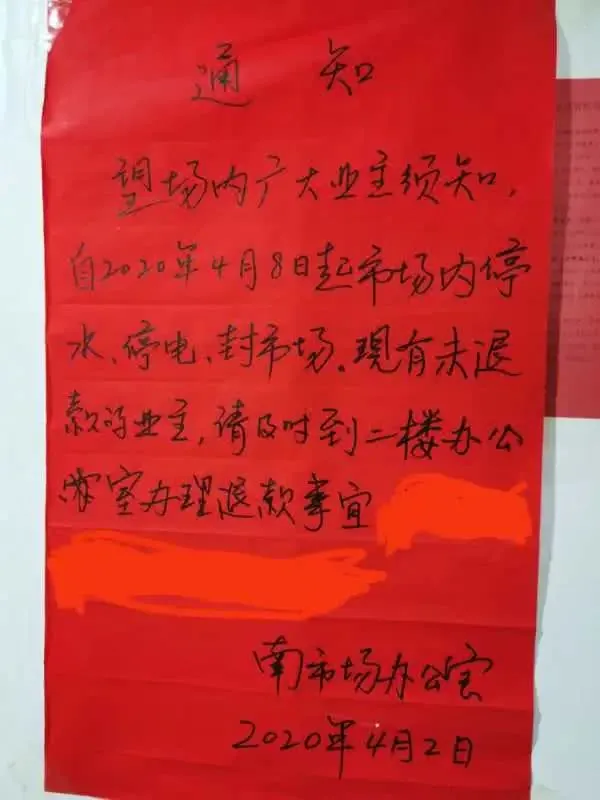 通知
望场内广大业主须知，
自2020年4月8日起市场内停
水、停电、封市场。现有未退
款的业主，请及时到二楼办公
室办理退款事宜
南市场办公室
2020年4月2日